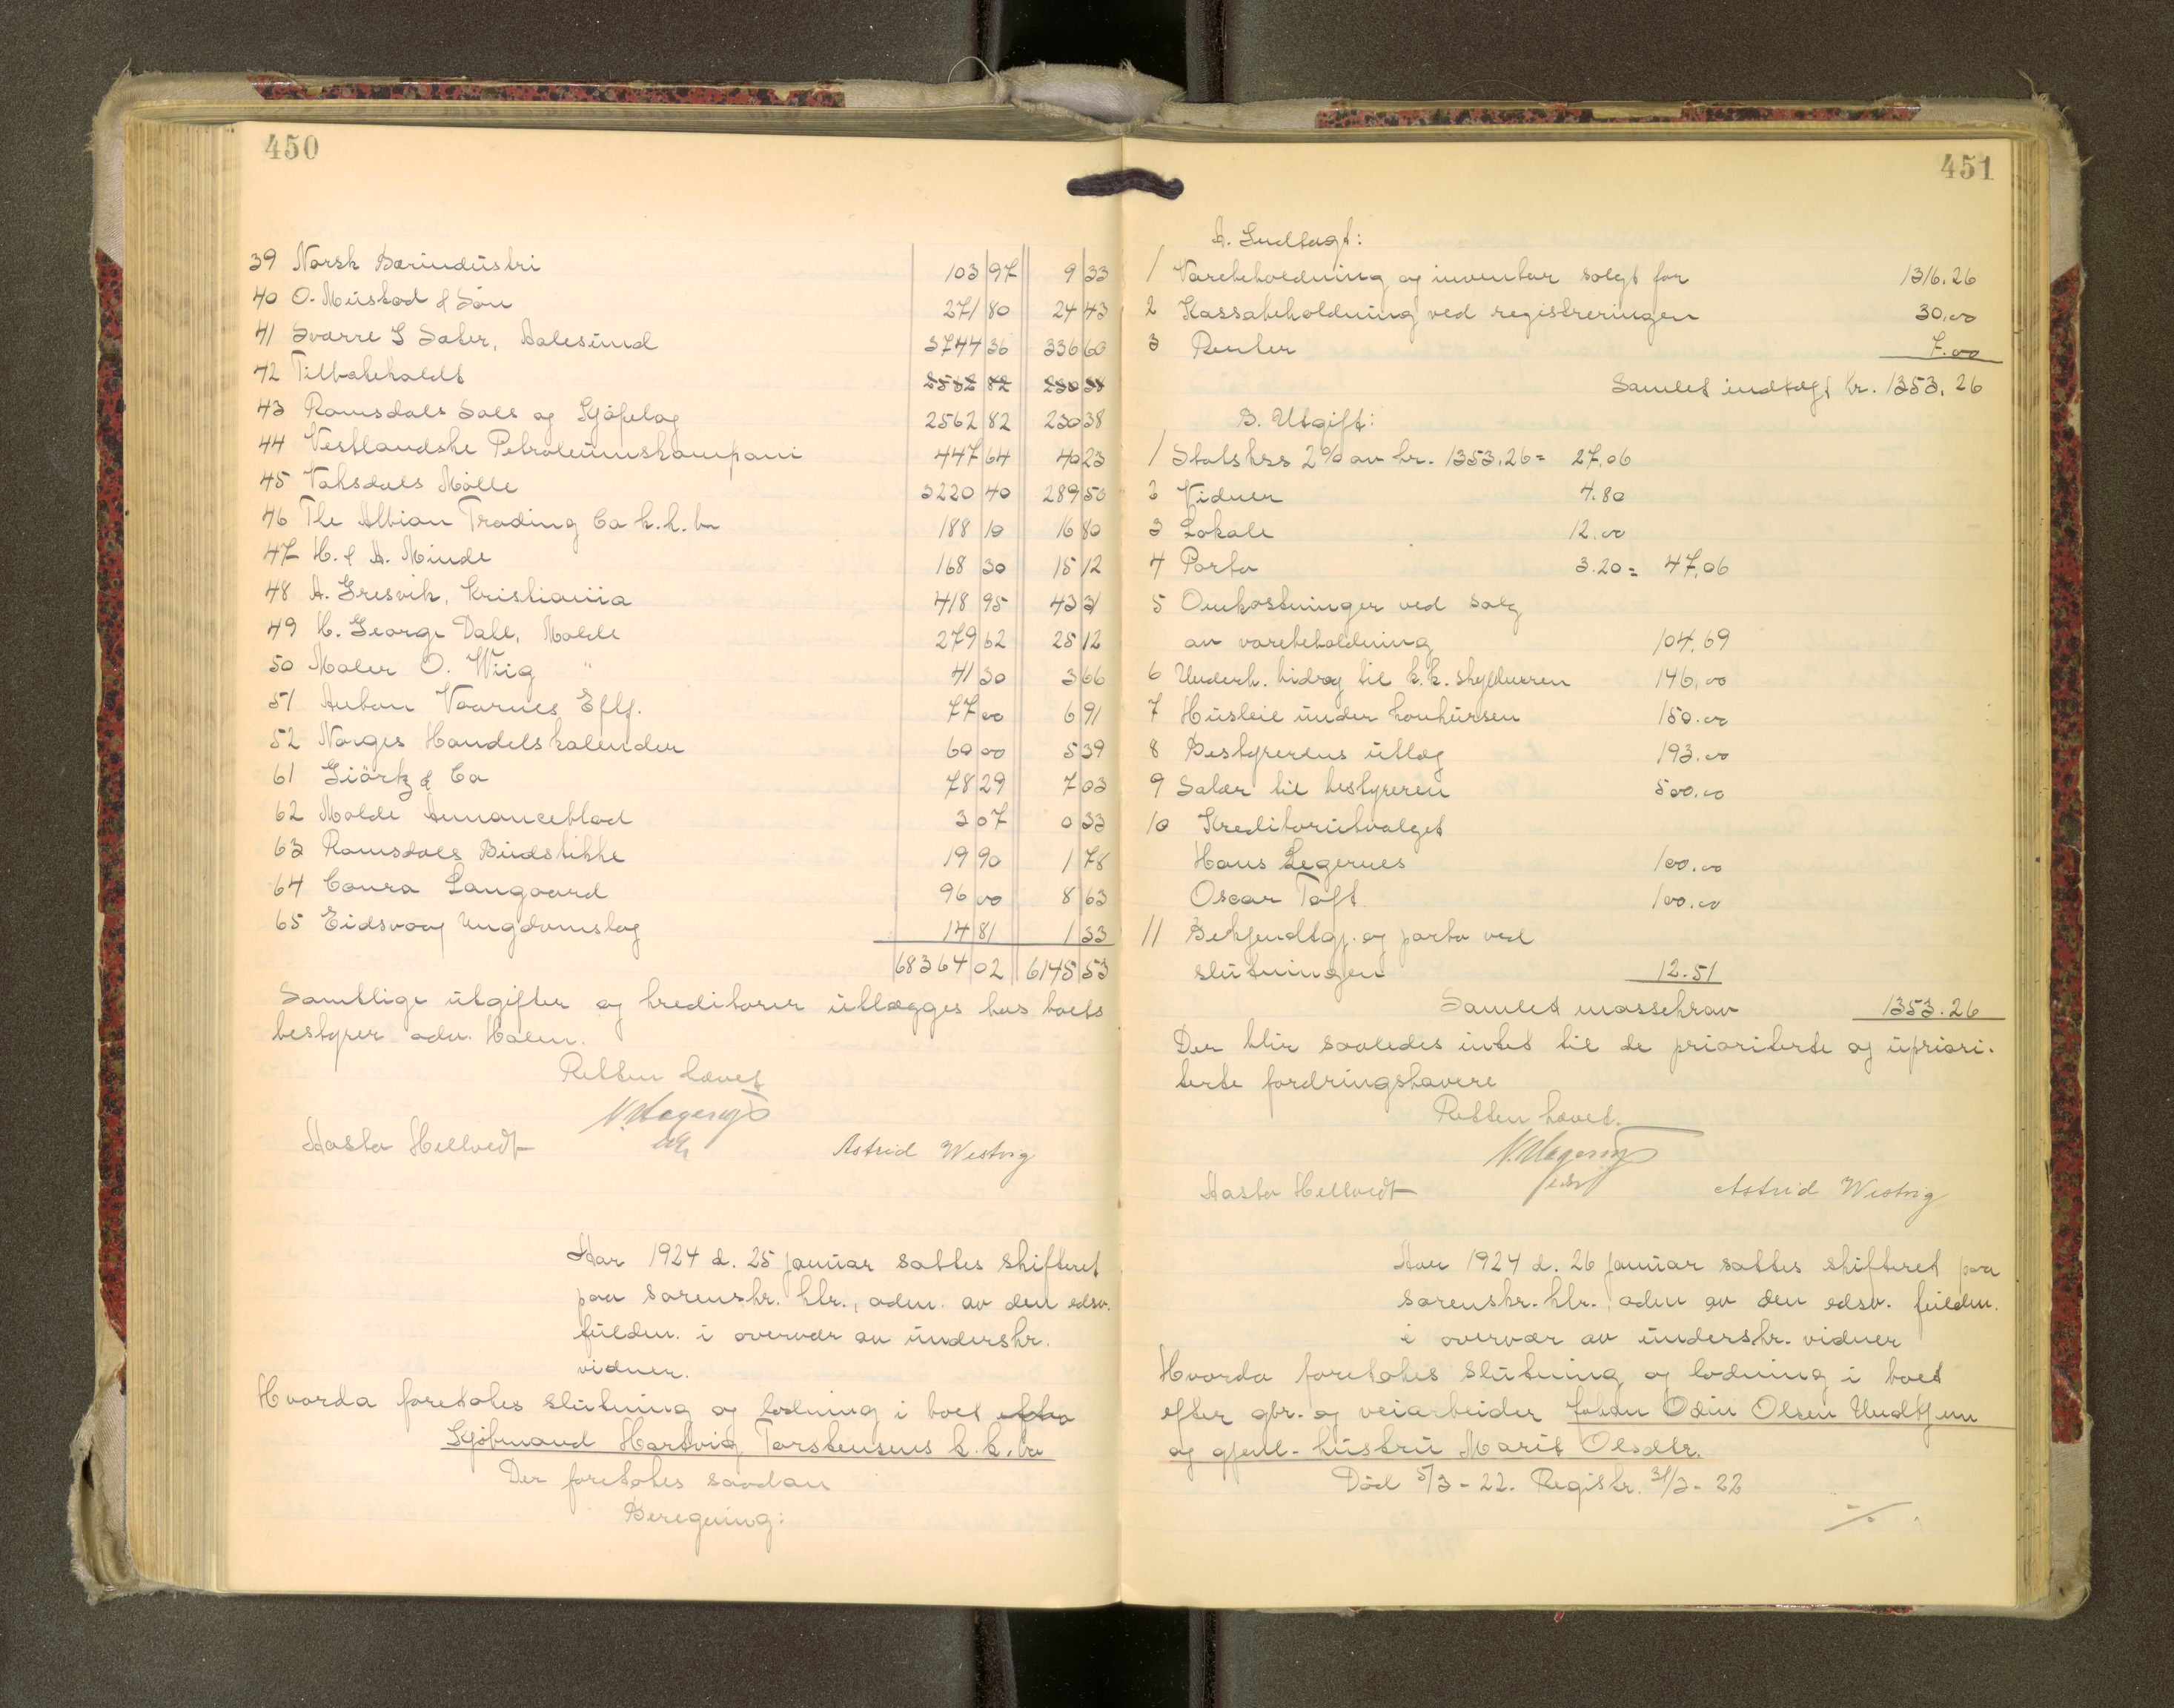 450
39 Norsk Bærindustri 103 97 9 33
40 O. Mustad & Søn 271 80 24 43
41 Svarre S Sæter, Aalesund 3744 36 336 60
42 Tilbakeholdt 2562 82 230 38
43 Romsdals Sals og Kjøpelag 2562 82 230 38
44 Vestlandske Petroleumskompani 447 64 40 23
45 Vaksdals Mølle 3220 40 289 50
46 The Albion Trading Co k.k.bo 188 10 16 80
47 H. & A. Minde 168 30 15 12
48 A. Gresvik, Kristiania 418 95 43 31
49 H. George Dahl, Molde 279 62 25 12
50 Maler O. Wiig " 41 30 3 66
51 Anton Vaarnes Eftf. 77 00 6 91
52 Norges Handelskalender 60 00 5 39
61 Giörtz & Co 78 29 7 03
62 Molde Annonceblad 3 07 0 33
63 Romsdals Budstikke 19 90 1 78
64 Conra Langaard 96 00 8 63
65 Eidsvaag Ungdomslag 14 81 1 33
68364 02 6145 53
Samtlige utgifter og kreditorer utlægges hos boets
bestyrer adv. Holen.
Retten hævet
Aasta Hellvedt Astrid Westvig
Aar 1924 d. 25 januar sattes skifteret
paa sorenskr. ktr., adm. av den edsv.
fuldm. i overvær av underskr.
vidner.
Hvorda foretokes slutning og lodning i boet efter
Kjøbmand Hartvig Torstensens k.k.bo
Der foretokes saadan
Beregning:
451
A. Indtægt:
1 Varebeholdning og inventar solgt for 1316.26
2 Kassabeholdning ved registreringen 30.00
3 Renter 7.00
Samlet indtægt kr. 1353.26
B. Utgift:
1 Statskss 2% av kr. 1353.26 = 27.06
2 Vidner 4.80
3 Lokale 12.00
4 Porto 3.20 = 47.06
5 Omkostninger ved salg
av varebeholdning 104.69
6 Underh. bidrag til k.k. skyldneren 146.00
7 Husleie under konkursen 150.00
8 Bestyrerens utlæg 193.00
9 Salær til bestyreren 500.00
10 Kreditorutvalget
Hans Legernes 100.00
Oscar Toft 100.00
11 Bekjendtgj. og porto ved
slutningen 12.51
Samlet massekrav 1353.26
Der blir saaledes intet til de prioriterte og upriori-
terte fordringshavere
Retten hævet.
Aasta Hellvedt Astrid Westvig
Aar 1924 d. 26 januar sattes skifteret paa
sorenskr. ktr., adm av den edsv. fuldm.
i overvær av underskr. vidner
Hvorda foretokes slutning og lodning i boet
efter gbr. og veiarbeider Johan Odin Olsen Undhjem
og gjenl. hustru Marit Olsdtr.
Død 5/3-22. Registr. 31/3-22